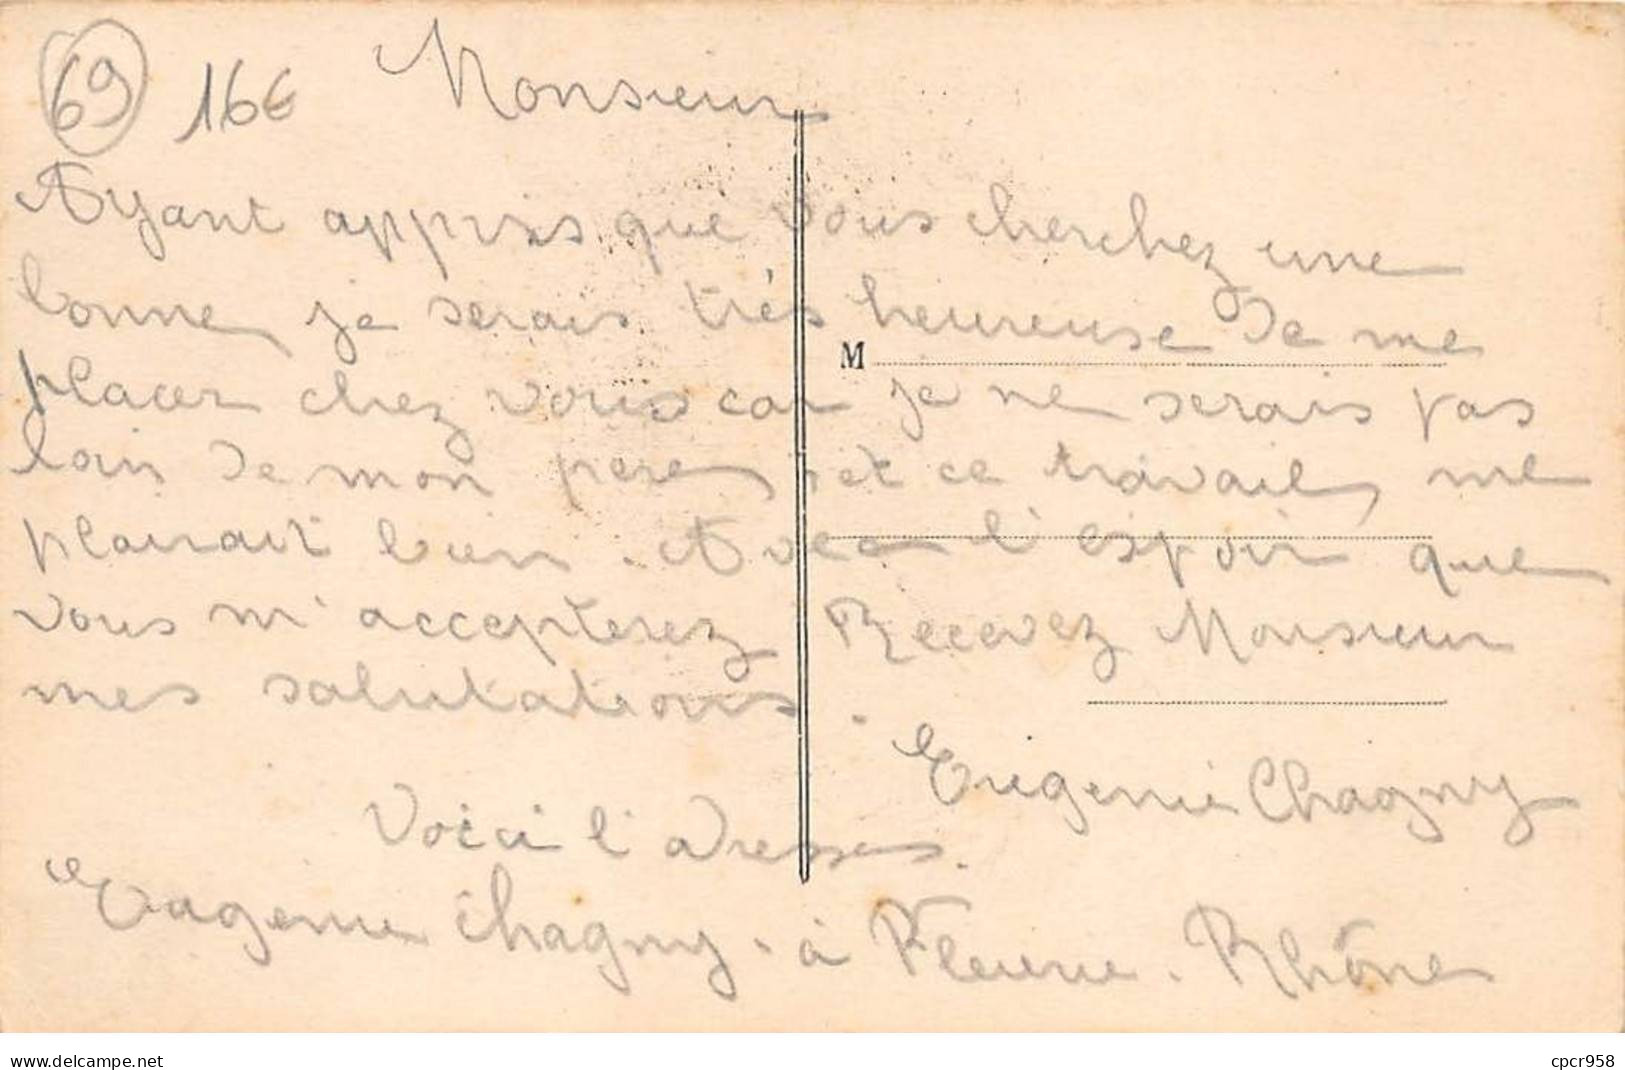 69 16€ Monsieur
Ayant appris que vous cherchez une
bonne je serais très heureuse de me
M
placer chez vous car je ne serais pas
loin de mon pere et ce travail me
plairait bien. Avec l'espoir que
vous m'accepterez Recevez Monsieur
mes salutations.
Eugenie Chagny
Voici l'adresse.
Eugenie Chagny. à Fleurie. Rhône
www.delcampe.net
cpcr958